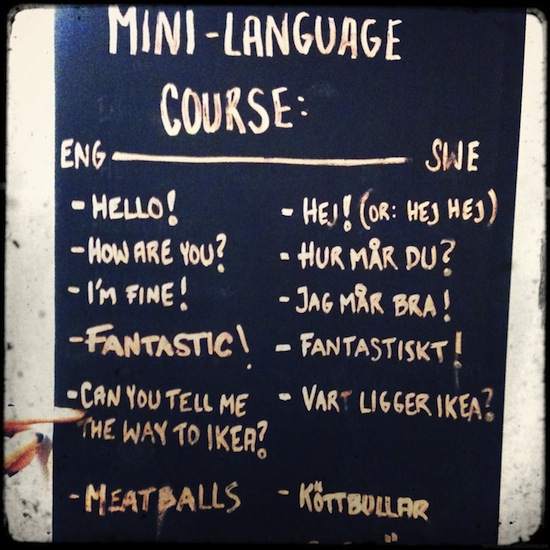 MINI-LANGUAGE
COURSE:
ENG — SWE
- HELLO! - HEJ! (OR: HEJ HEJ)
- HOW ARE YOU? - HUR MÅR DU?
- I'M FINE! - JAG MÅR BRA!
- FANTASTIC! - FANTASTISKT!
- CAN YOU TELL ME - VART LIGGER IKEA?
THE WAY TO IKEA?
- MEATBALLS - KÖTTBULLAR